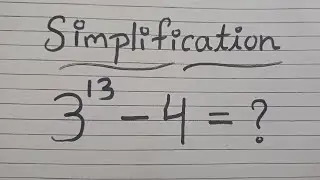 Simplification
3¹³ - 4 = ?